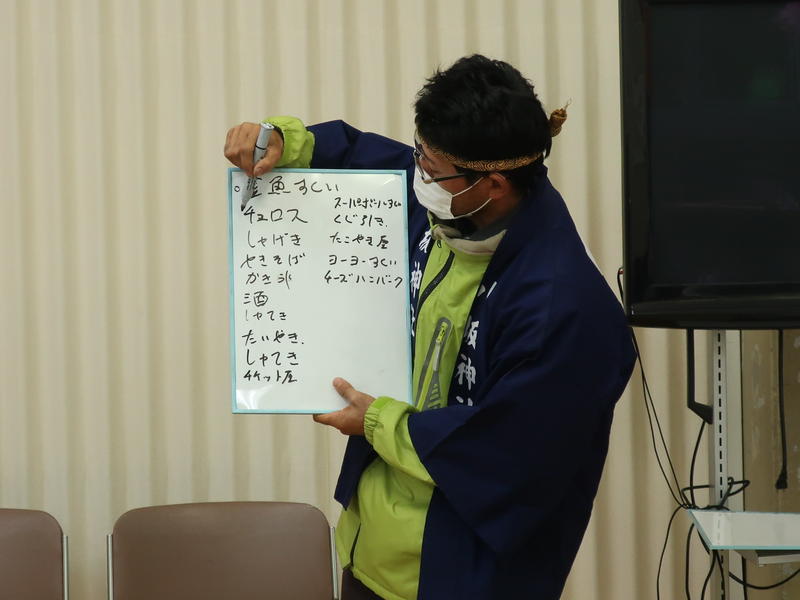 。金魚すくい
チュロス
しゃげき
やきそば
かき氷
酒
しゃてき
たいやき.
しゃてき
チケット屋
スーパーボールすくい
くじ引き.
たこやき屋
ヨーヨーすくい
チーズハンバーグ
坂神社
神社